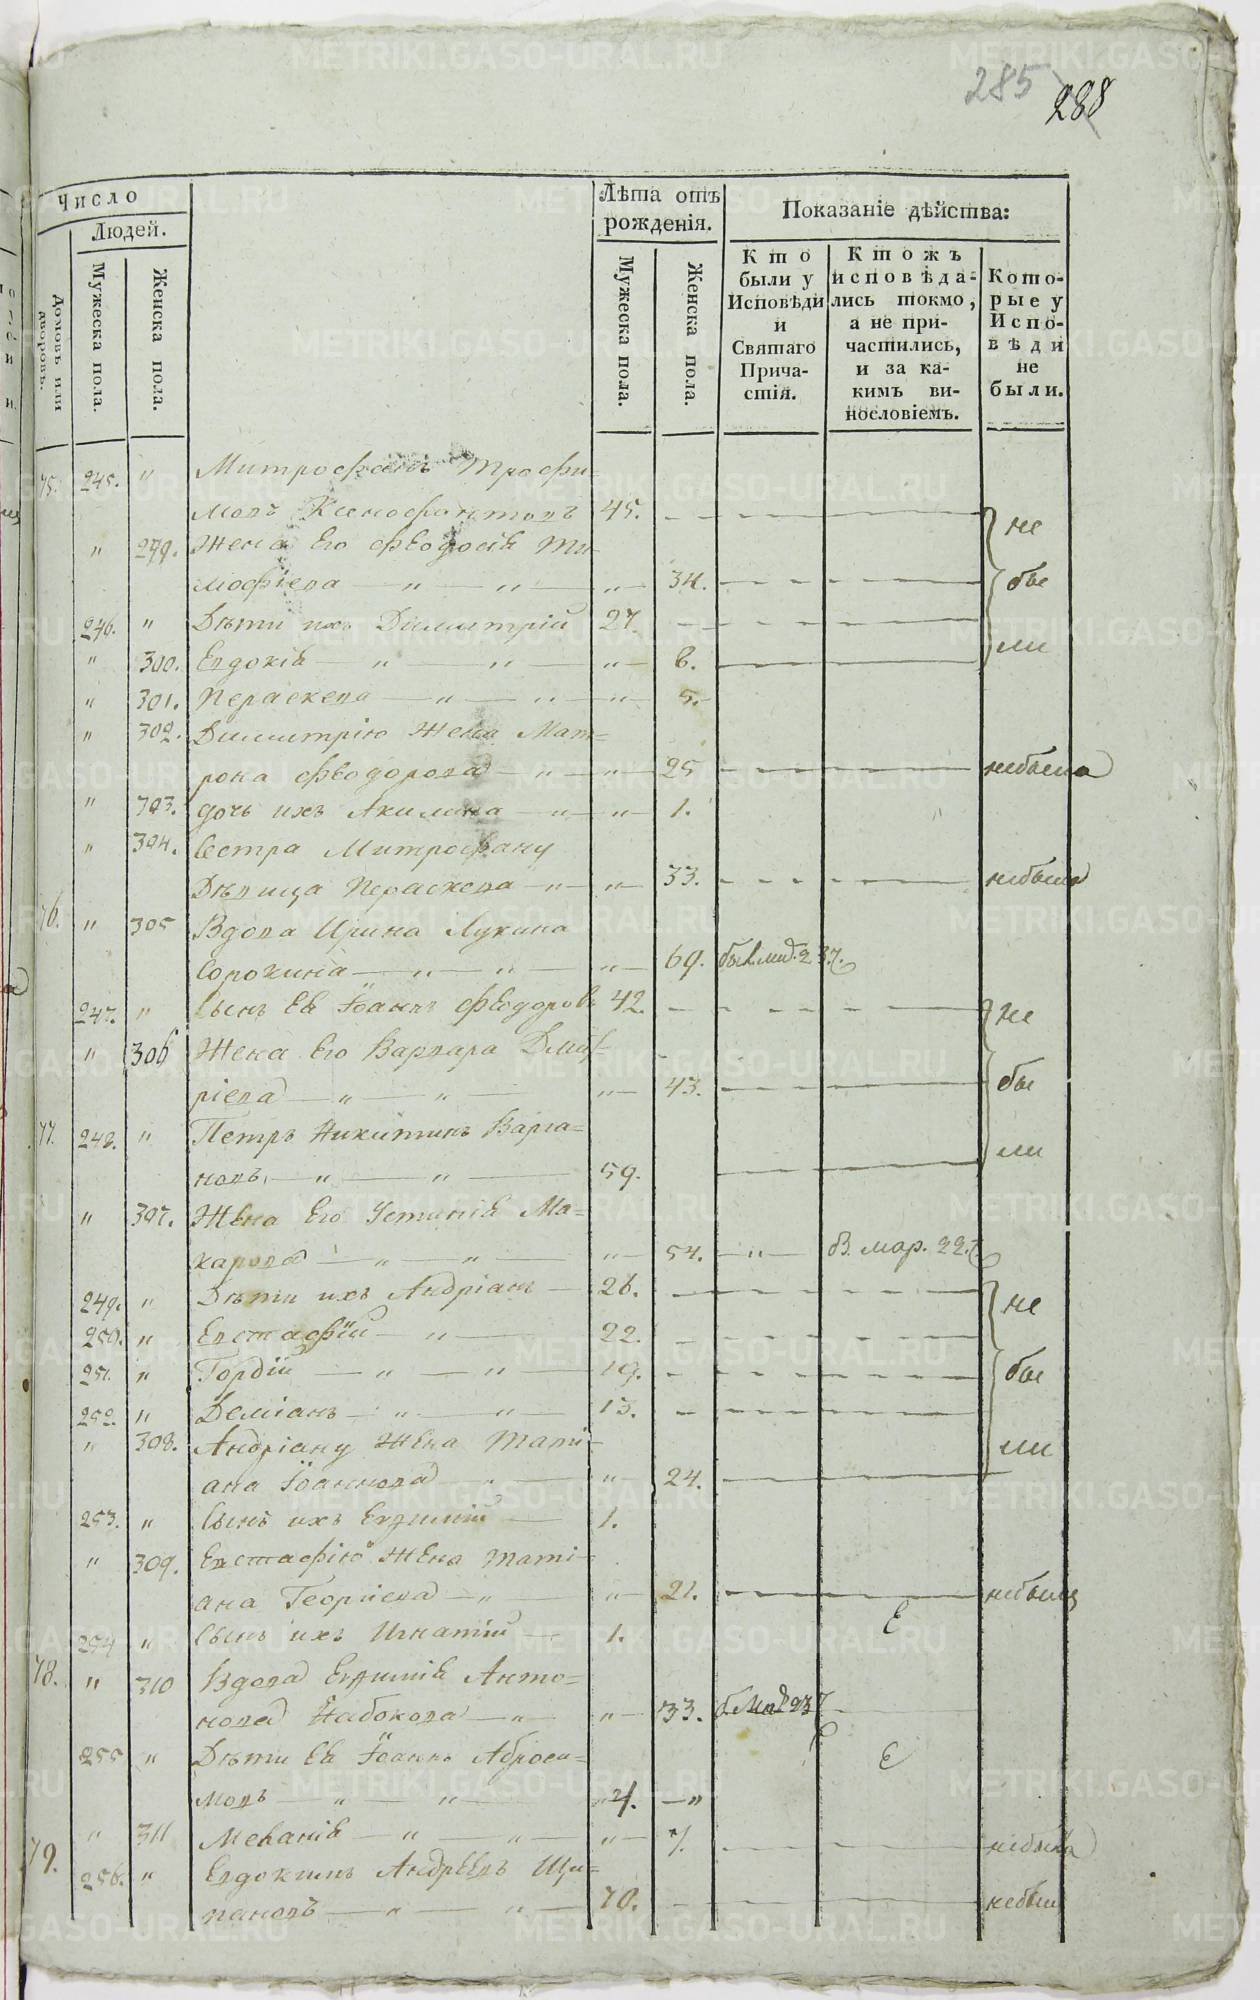 285 288
Число
Людей.
Домовъ или дворовъ.
Мужеска пола.
Женска пола.
Лѣта отъ рожденія.
Мужеска пола.
Женска пола.
Показаніе дѣйства:
Кто были у Исповѣди и Святаго Причастія.
Ктожъ исповѣдались токмо, а не причастились, и за какимъ винословіемъ.
Которые у Исповѣди не были.
75. 245. " Митрофанъ Трофи=
мовъ Ксенофонтовъ 45. не
" 299. Жена его Ѳеодосія Ти-
мофѣева " 34. бы
246. " Дѣти ихъ Димитрій 27.
" 300. Евдокія " 8. ли
" 301. Параскева " 5.
" 302. Димитрію Жена Мат=
рона Ѳеодорова " 25 небыла
" 303. дочь ихъ Акилина " 1.
" 304. Сестра Митрофану
Дѣвица Параскева " 33. небыла
76. " 305 Вдова Ирина Лукина
Сорокина " 69.
247. " Сынъ Ея Іоаннъ Ѳеодоровъ 42. не
" 306 Жена Его Варвара Дмит-
ріева " 43. бы
77. 248. " Петръ Никитинъ Варга=
новъ 59. ли
" 307. Жена Его Устинія Ма=
карова " 54. " В. мар. 22.
249. " Дѣти ихъ Андріанъ 26. не
250. " Евстафій 22.
251. " Гордій 19. бы
252. " Деміанъ 15.
" 308. Андріану Жена Тати-
ана Іоаннова " 24. ли
253. " Сынъ ихъ Евфимій 1.
" 309. Евстафію Жена Тати-
ана Георгіева " 21. небыла
254 " Сынъ ихъ Игнатій 1.
78. " 310 Вдова Евфимія Анто=
нова Набокова " 33.
255 " Дѣти Ея Іоаннъ Аброси=
мовъ 4. "
" 311 Меланія " 7. небыла
79. 256. " Евдокимъ Андрѣевъ Щи=
пановъ 70. небылъ